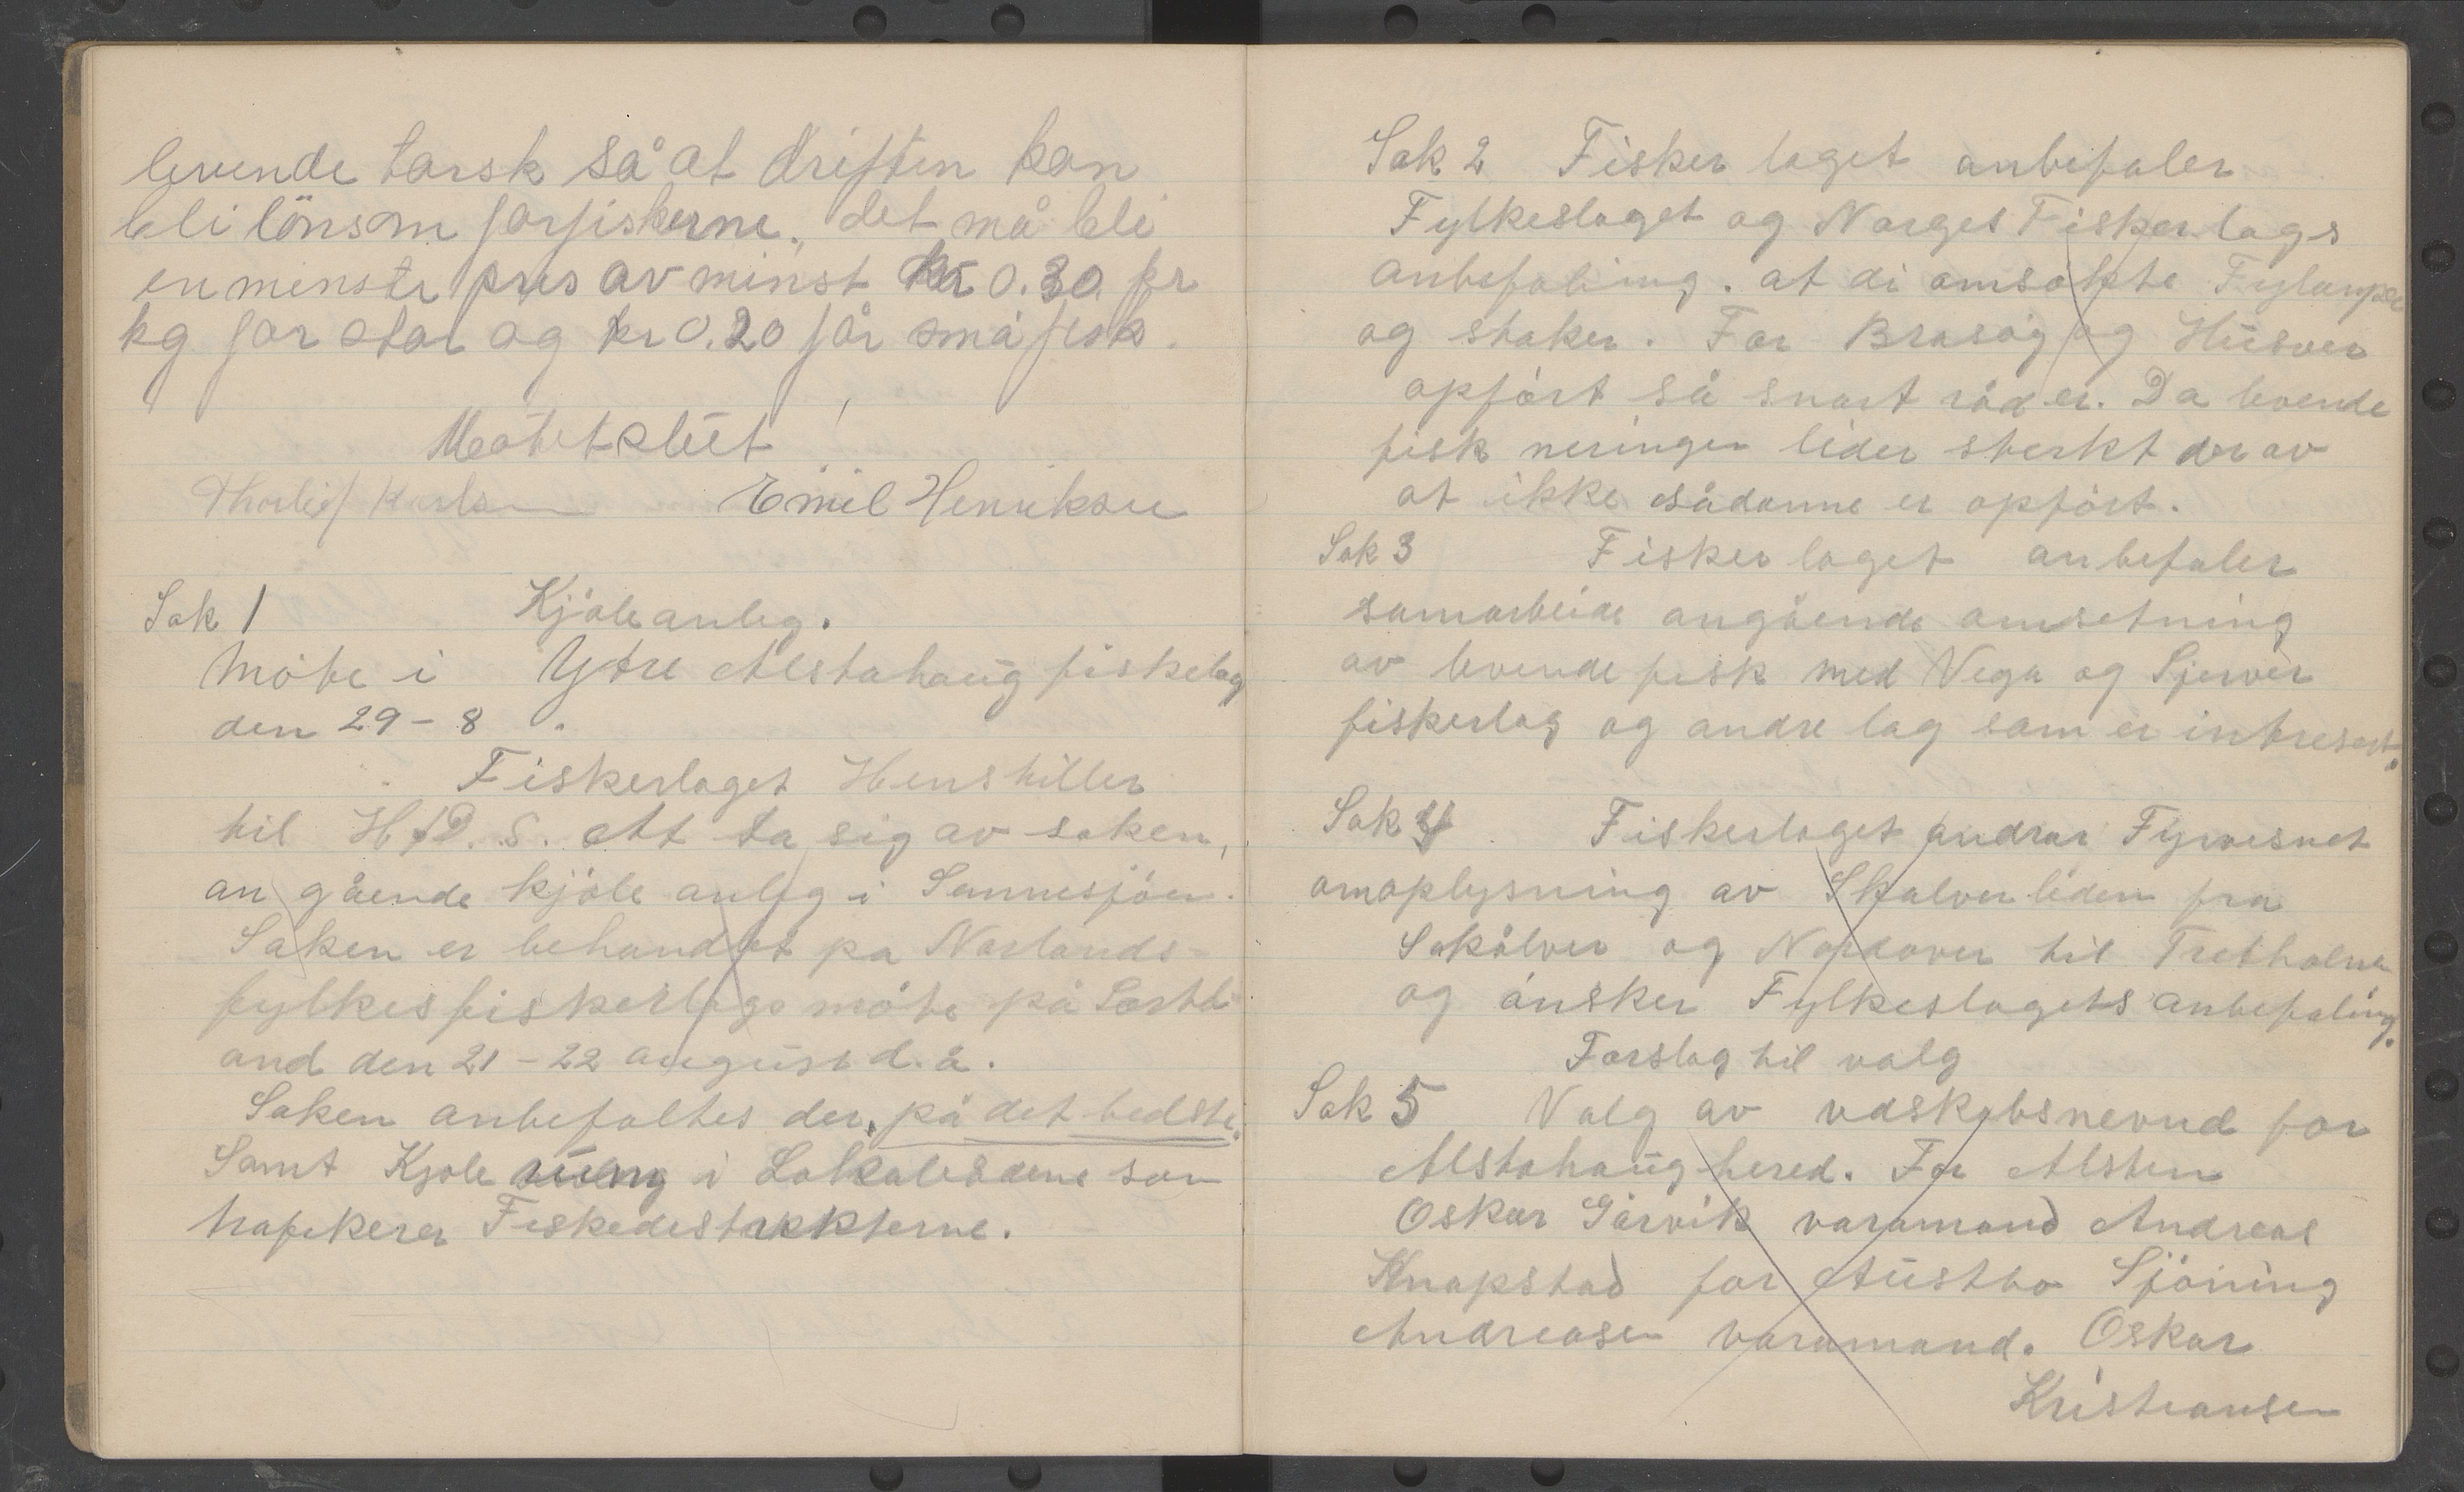 levende tarsk så at driften kan
bli lönsom forfiskerne. det må bli
en menste pris av minst kr 0.30 pr
kg for stor og kr 0.20 får små fisk.
Mötet slut
Thorleif Karlsen Emil Henriksen
Sak 1 Kjöleanleg.
Möte i Ytre Alstahaug fiskelag
den 29-8.
Fiskerlaget Henstiller
til H.D.S. Att ta sig av saken,
an gående kjöle anleg i Sannesjöen.
Saken er behandlet pa Norlands-
fylkesfiskerlags möte på Sortl-
and den 21-22 august d.å.
Saken anbefaltes der, på det bedste.
Samt Kjöle i Lokalbådene som
trafikerer Fiskedistriktterne.
Sak 2 Fisker laget anbefaler
Fylkeslaget og Norges Fisker lags
anbefaling. at di omsökte
og staker. For Brasöy og Husver
opfört så snart råd er. Da levende
fisk neringen lider sterkt der av
at ikke sådanne er opfört.
Sak 3 Fisker laget anbefaler
samarbeide angående omsetning
av levende fisk med Vega og Tjerver
fiskerlag og andre lag som er intresert.
Sak 4 Fiskerlaget andrar Fyrvesnet
omoplysning av Skalverleden fra
Skålver og til
og önsker Fylkeslagets anbefaling.
Forslag til valg
Sak 5 Valg av vaskebsnevnd for
Alstahaug hered. For Alsten
Oskar Gårvik varamand Andreas
Knapstad for Austbo Sjöning
Andreasen varamand. Oskar
Kristiansen